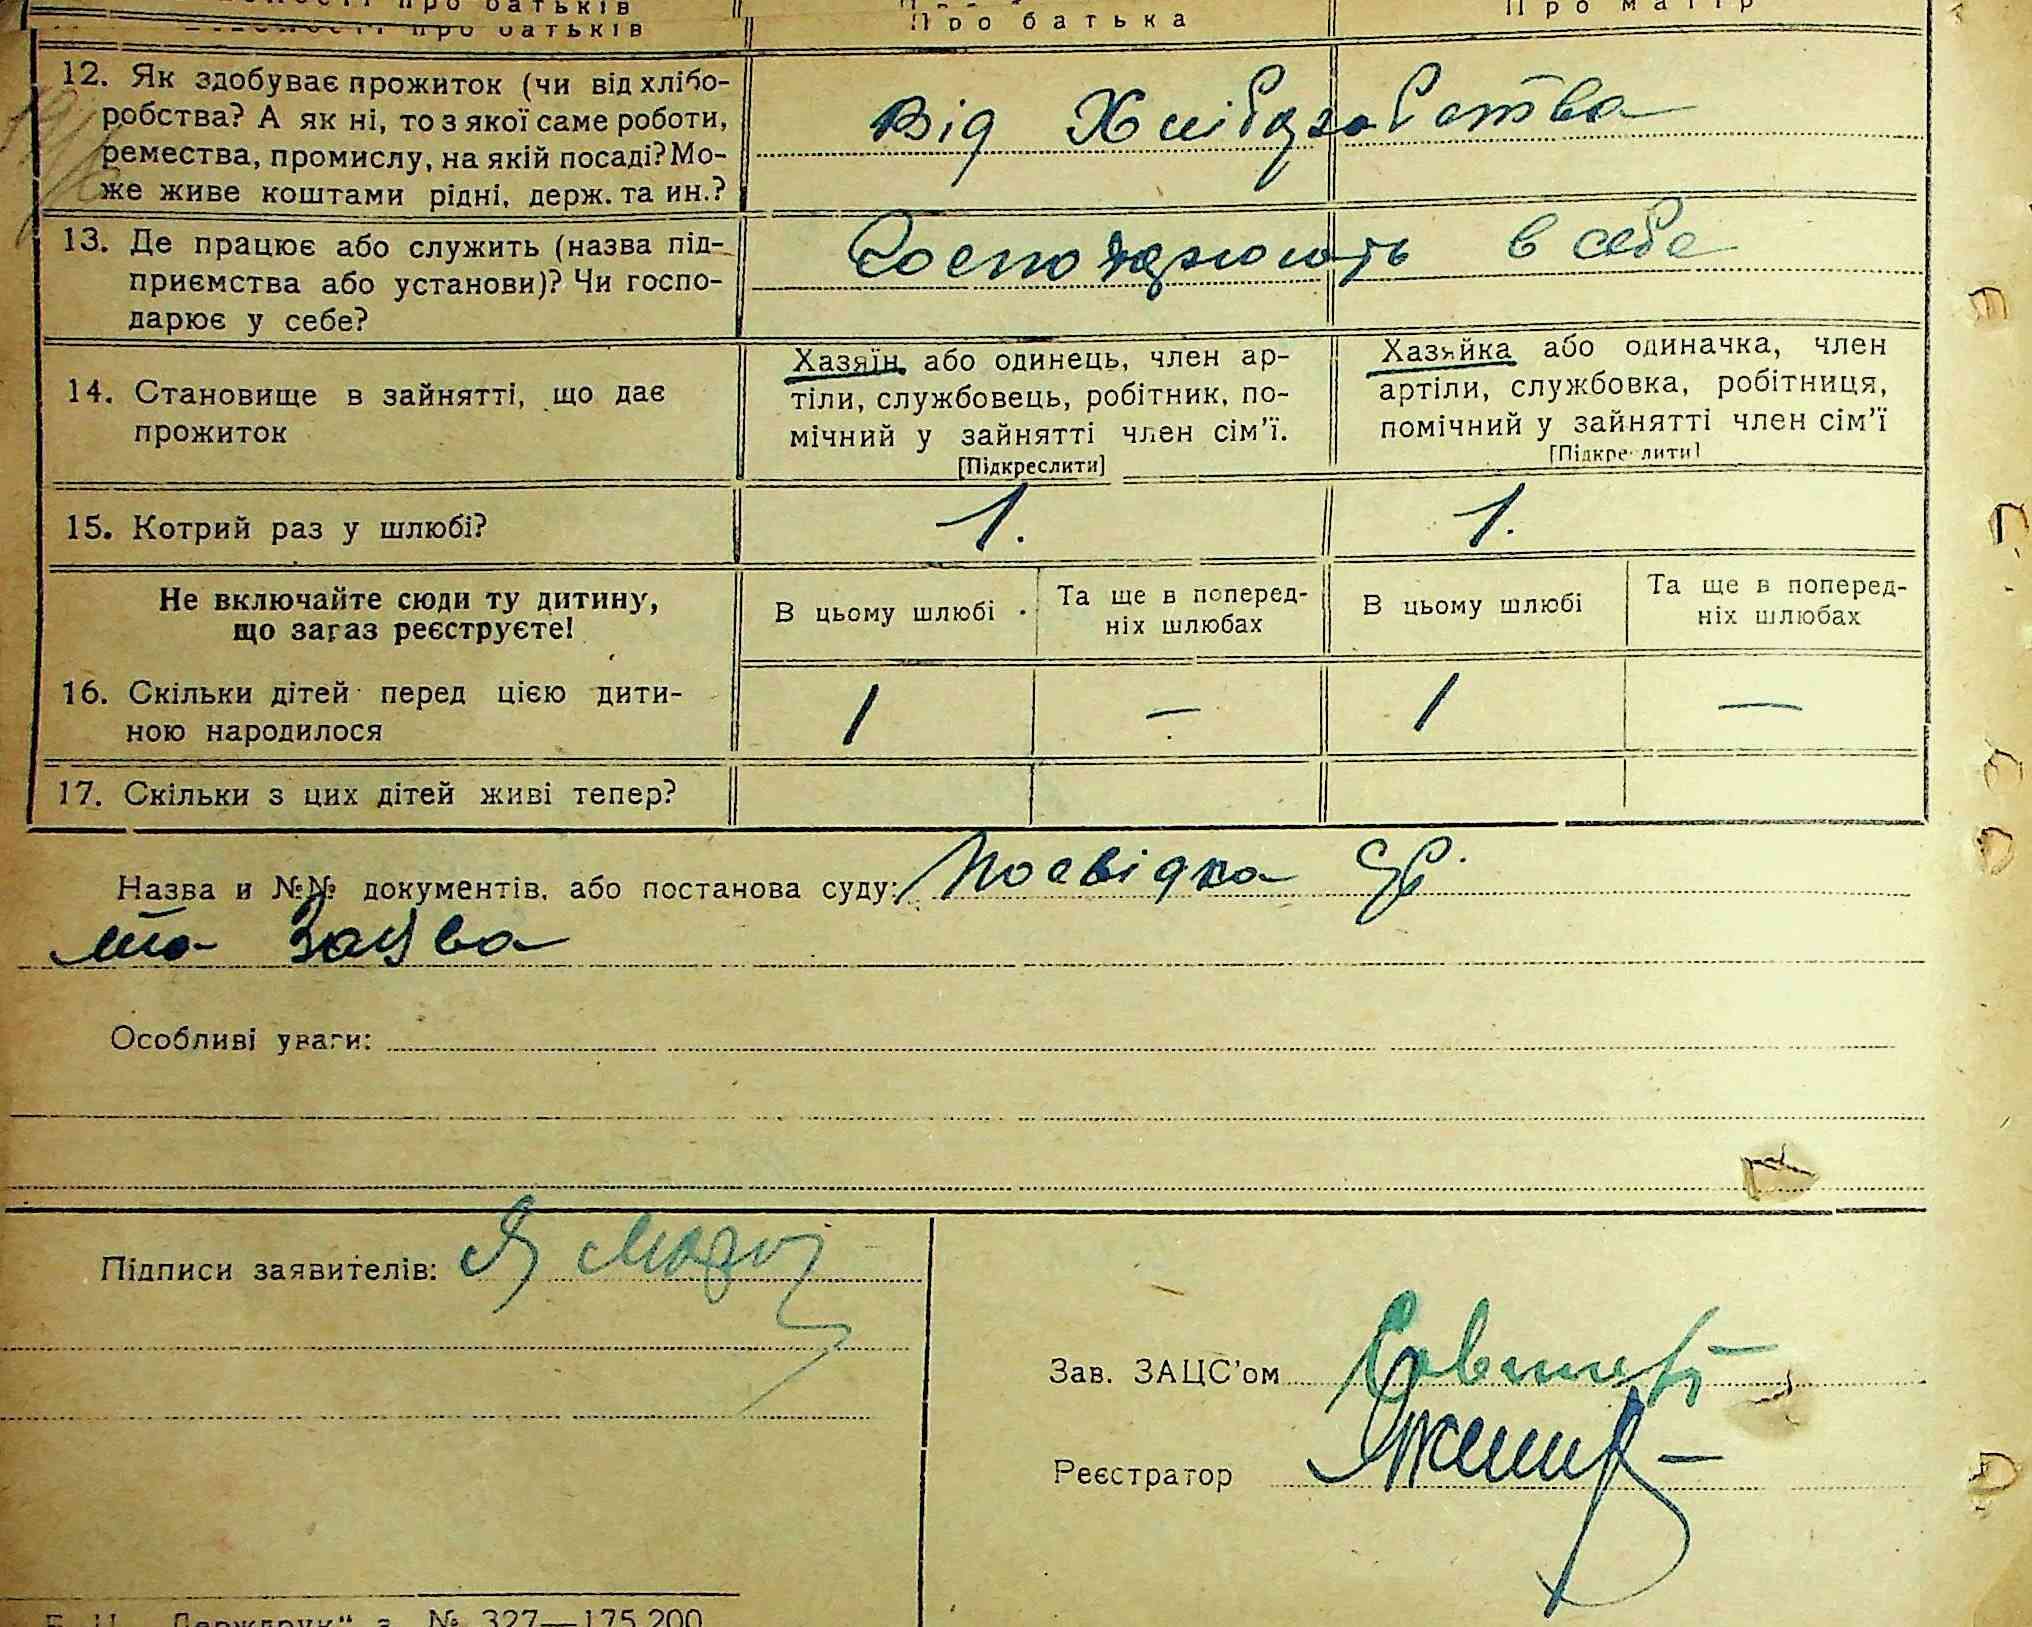 Про батька Про матір
про батьків
12. Як здобуває прожиток (чи від хлібо-
робства? А як ні, то з якої саме роботи,
ремества, промислу, на якій посаді? Мо-
же живе коштами рідні, держ. та ин.?
від Хліборобства
13. Де працює або служить (назва під-
приємства або установи)? Чи госпо-
дарює у себе?
Господарюють в себе
14. Становище в зайнятті, що дає
прожиток
Хазяїн або одинець, член ар-
тіли, службовець, робітник, по-
мічний у зайнятті член сім'ї.
[Підкреслити]
Хазяйка або одиначка, член
артіли, службовка, робітниця,
помічний у зайнятті член сім'ї
[Підкреслити]
15. Котрий раз у шлюбі?
1. 1.
Не включайте сюди ту дитину,
що зараз реєструєте!
В цьому шлюбі
Та ще в поперед-
ніх шлюбах
В цьому шлюбі
Та ще в поперед-
ніх шлюбах
16. Скільки дітей перед цією дити-
ною народилося
1 — 1 —
17. Скільки з цих дітей живі тепер?
Назва и №№ документів, або постанова суду: Посвідка
та Заява
Особливі уваги:
Підписи заявителів:
Зав. ЗАЦС'ом
Реєстратор
Держдрук" з. № 327—175.200